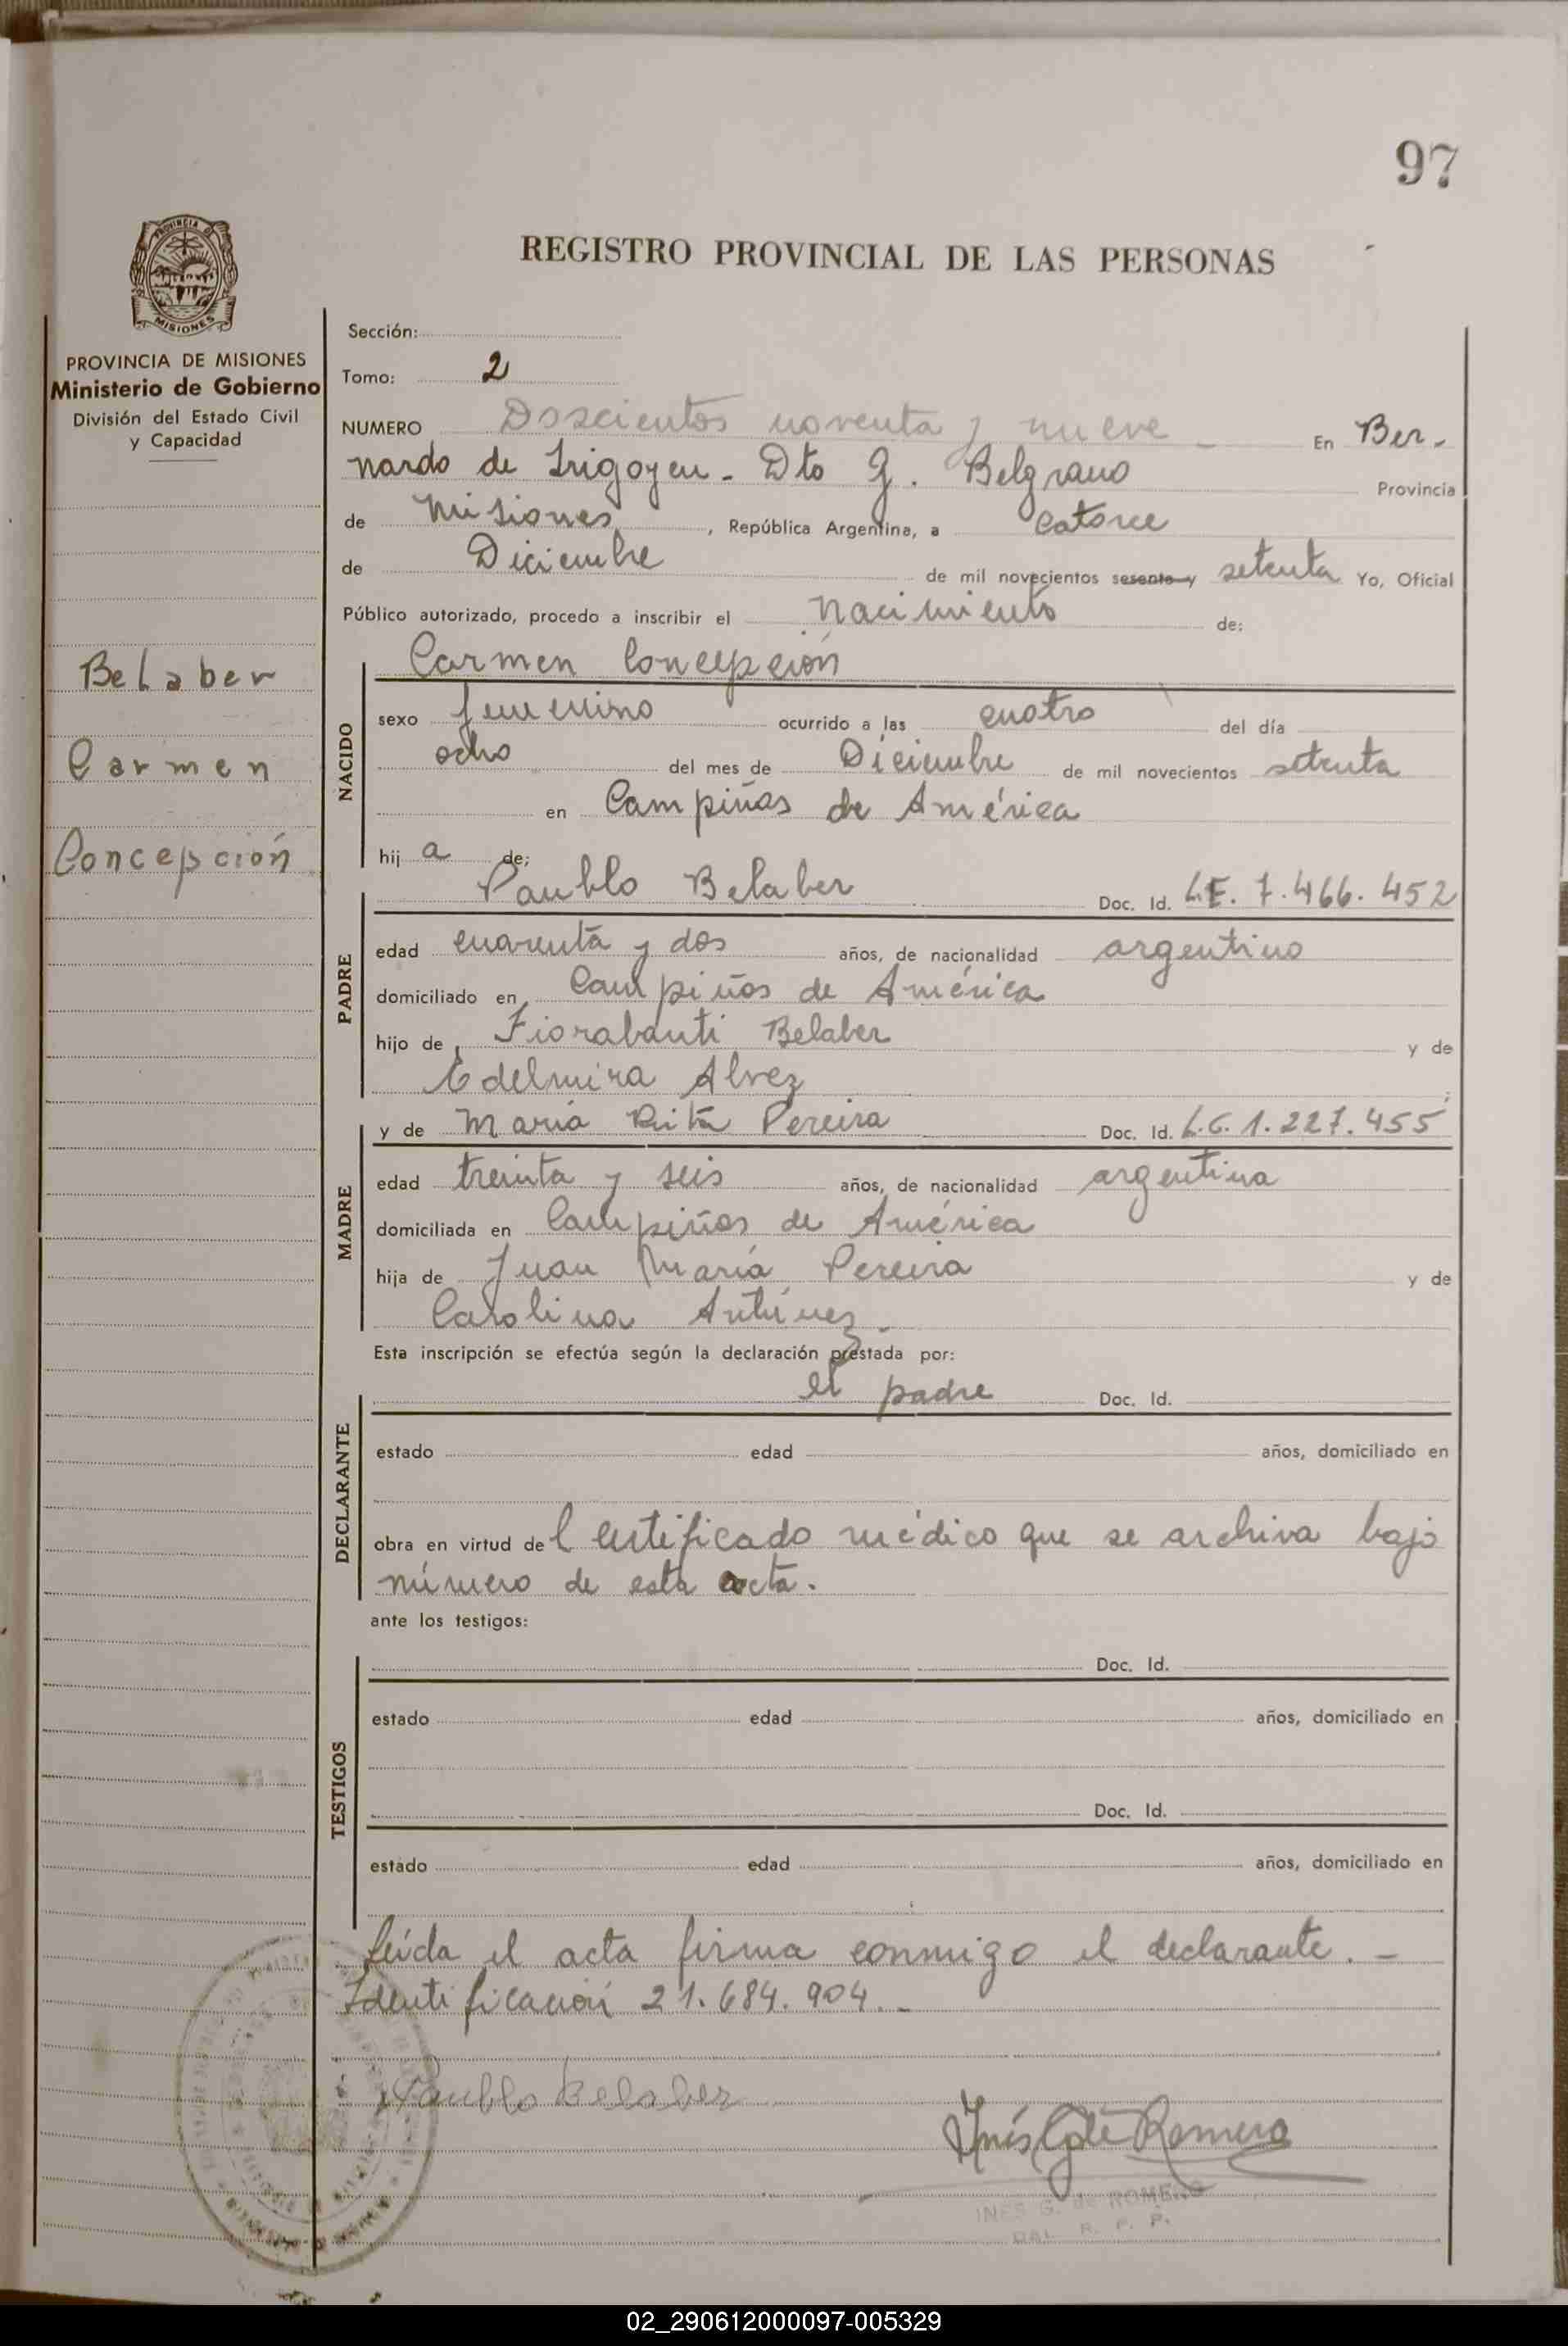 97
REGISTRO PROVINCIAL DE LAS PERSONAS
PROVINCIA DE MISIONES
Ministerio de Gobierno
División del Estado Civil
y Capacidad
Belaber
Carmen
Concepción
Sección:
Tomo: 2
NUMERO Doscientos noventa y nueve - En Ber-
nardo de Irigoyen - Dto G. Belgrano Provincia
de Misiones, República Argentina, a catorce
de Diciembre de mil novecientos sesenta y setenta Yo, Oficial
Público autorizado, procedo a inscribir el nacimiento de:
Carmen Concepción
NACIDO
sexo femenino ocurrido a las cuatro del día
ocho del mes de Diciembre de mil novecientos setenta
en Campiñas de América
hij a de:
Paublo Belaber Doc. Id. L.E. 7.466.452
PADRE
edad cuarenta y dos años, de nacionalidad argentino
domiciliado en Campiñas de América
hijo de Fiorabanti Belaber y de
Edelmira Alvez
y de María Rita Pereira Doc. Id. L.C. 1.227.455
MADRE
edad treinta y seis años, de nacionalidad argentina
domiciliada en Campiñas de América
hija de Juan María Pereira y de
Carolina Antúnez -
Esta inscripción se efectúa según la declaración prestada por:
el padre Doc. Id.
DECLARANTE
estado edad años, domiciliado en
obra en virtud del certificado médico que se archiva bajo
número de esta acta.
ante los testigos:
Doc. Id.
TESTIGOS
estado edad años, domiciliado en
Doc. Id.
estado edad años, domiciliado en
Leída el acta firma conmigo el declarante. -
Identificación 21.684.904. -
Paublo Belaber
Inés G. de Romero
INES G. de ROMERO
R. P. P.
02_290612000097-005329